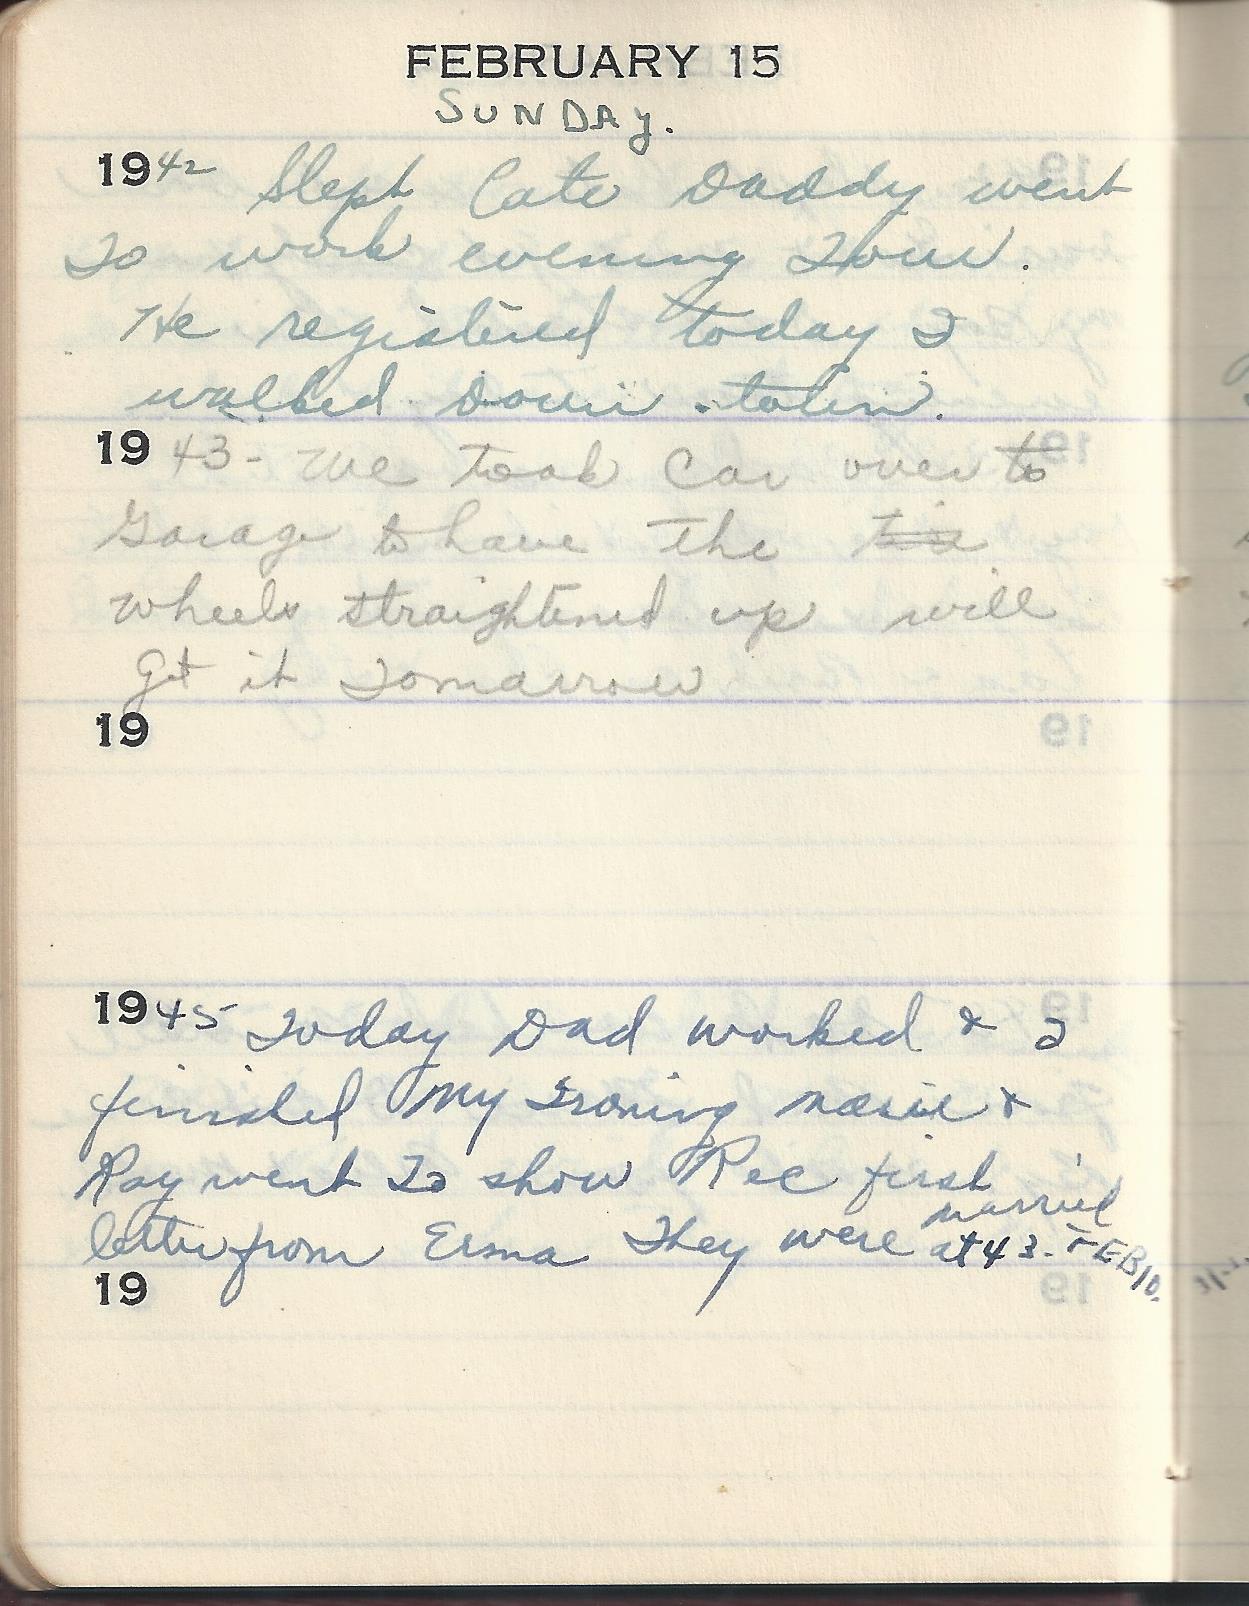 FEBRUARY 15
SUNDAY.
1942 Slept late Daddy went
To work evening Tour.
He registered today I
walked down town.
1943- We took car over to
Garage to have the
wheels straightened up will
Get it Tomarrow
19
1945 Today Dad worked & I
finished My Ironing &
Ray went To show Rec first
letter from Erma They were married
at 43. FEB 10.
19